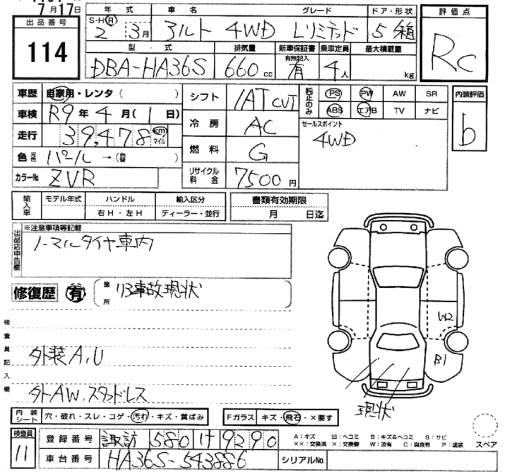 7月17日
出品番号 年式 車名 グレード ドア・形状 評価点
114 S・H・R 2年 3月 アルト 4WD Lリミテッド 5 箱 RC
型式 排気量 新車保証書 有無記入 乗車定員 最大積載量
DBA-HA36S 660cc 有 4人 kg
車歴 自家用・レンタ( ) シフト IAT CVT 純正のみ PS PW AW SR 内装評価
車検 R9年4月(1日) ABS エアB TV ナビ b
走行 39,478 km マイル 冷房 AC セールスポイント
色 パール→( ) 燃料 G 4WD
カラーNo ZVR リサイクル料金 7500円
輸入車 モデル年式 ハンドル 輸入区分 書類有効期限
右H・左H ディーラー・並行 月 日迄
出品店申告欄 ※注意事項等記載
ノーマルタイヤ車内
修復歴 有 箇所 リヤ事故現状
検査員記入欄
外装A,U
W2
B1
外AW.スタッドレス
現状
内装シート 穴・破れ・スレ・コゲ・汚れ・キズ・黄ばみ Fガラス キズ・飛石・×要す
検査員 11 登録番号 諏訪 580 け 9290 スペア
A:キズ U:ヘコミ B:キズ&ヘコミ S:サビ
××:交換済 X:要交換 W:波有 C:腐食有 P:塗装
車台番号 HA36S-543886 シリアルNo.